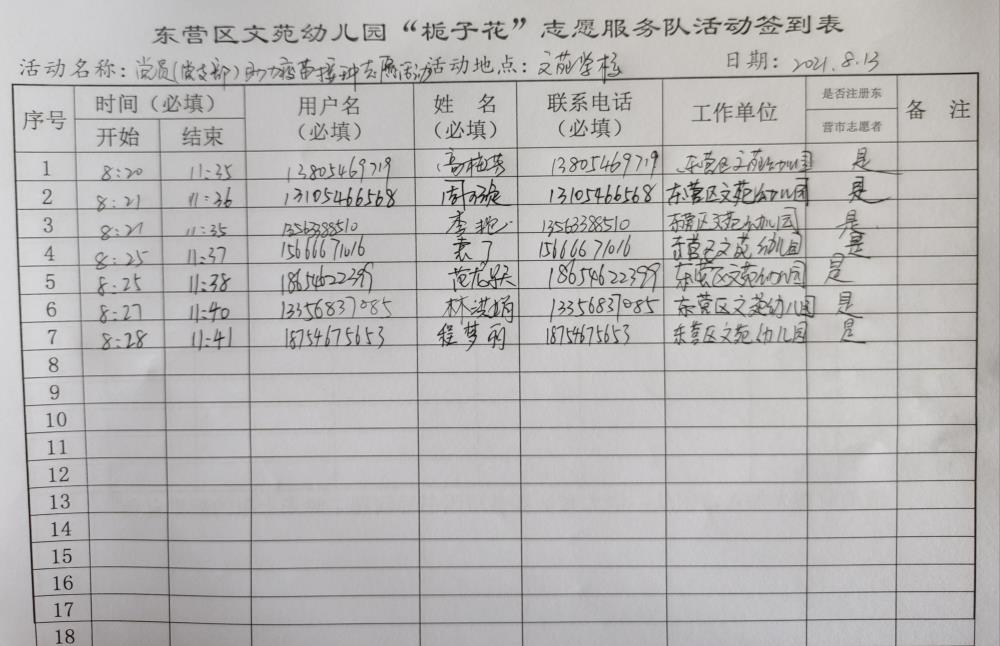 东营区文苑幼儿园“栀子花”志愿服务队活动签到表
活动名称：党员(党支部)助力疫苗接种志愿活动 活动地点：文苑学校 日期：2021.8.13
序号 时间（必填） 用户名（必填） 姓名（必填） 联系电话（必填） 工作单位 是否注册东营市志愿者 备注
开始 结束
1 8:20 11:35 13805469719 高梅芳 13805469719 东营区文苑幼儿园 是
2 8:21 11:36 13105466568 13105466568 东营区文苑幼儿园 是
3 8:21 11:35 13563388510 李艳 13563388510 东营区文苑幼儿园 是
4 8:25 11:37 15666671016 袁丁 15666671016 东营区文苑幼儿园 是
5 8:25 11:38 18654622399 18654622399 东营区文苑幼儿园 是
6 8:27 11:40 13356837085 林洪娟 13356837085 东营区文苑幼儿园 是
7 8:28 11:41 18754675653 程梦雨 18754675653 东营区文苑幼儿园 是
8
9
10
11
12
13
14
15
16
17
18